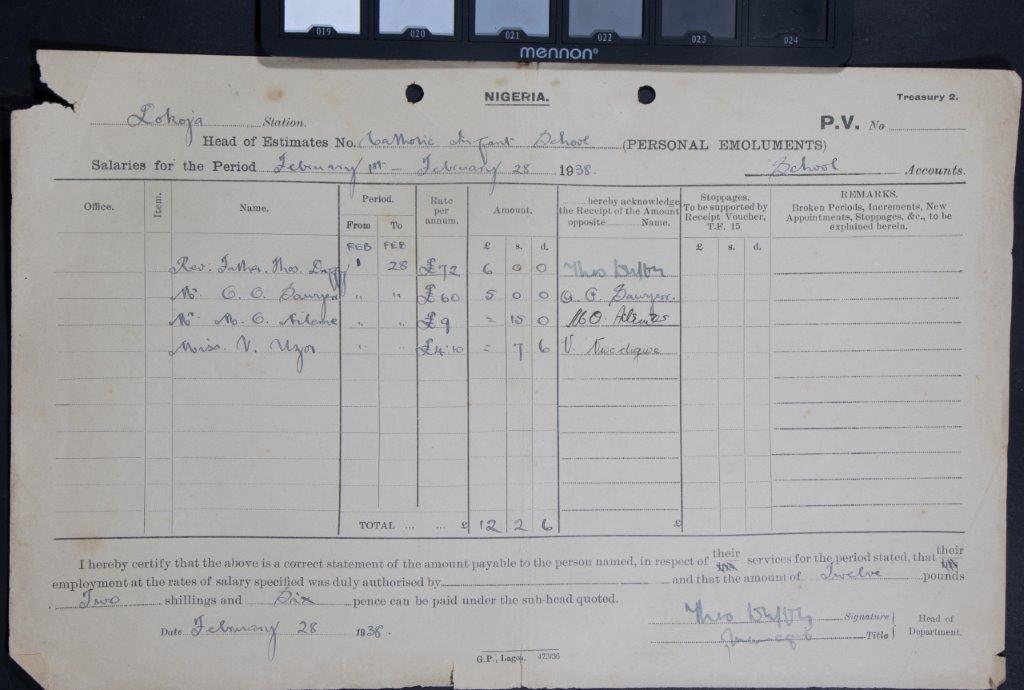 019 020 021 022 023 024
mennon®
NIGERIA.
Treasury 2.
Lokoja Station.
P.V. No
Head of Estimates No. Catholic Infant School (PERSONAL EMOLUMENTS)
Salaries for the Period February 1st – February 28 1938. School Accounts.
Office. Item. Name. Period. From To Rate per annum. Amount. £ s. d. hereby acknowledge the Receipt of the Amount opposite Name. Stoppages. To be supported by Receipt Voucher, T.F. 15 £ s. d. REMARKS. Broken Periods, Increments, New Appointments, Stoppages, &c., to be explained herein.
FEB FEB
Rev: Father. Thos. Duffy 1 28 £72 6 0 0 Theo Duffy
Mr. O. O. Sawyerr " " £60 5 0 0 Sawyerr.
Mr. M. O. " " £9 = 15 0 M O.
Miss. V. Uzor " " £4.10 = 7 6 V.
TOTAL ... ... £ 12 2 6 £
I hereby certify that the above is a correct statement of the amount payable to the person named, in respect of their services for the period stated, that their
employment at the rates of salary specified was duly authorised by and that the amount of Twelve pounds
Two shillings and Six pence can be paid under the sub-head quoted.
Date February 28 1938.
Theo Duffy Signature
Title
Head of Department.
G.P., Lagos. 473/36